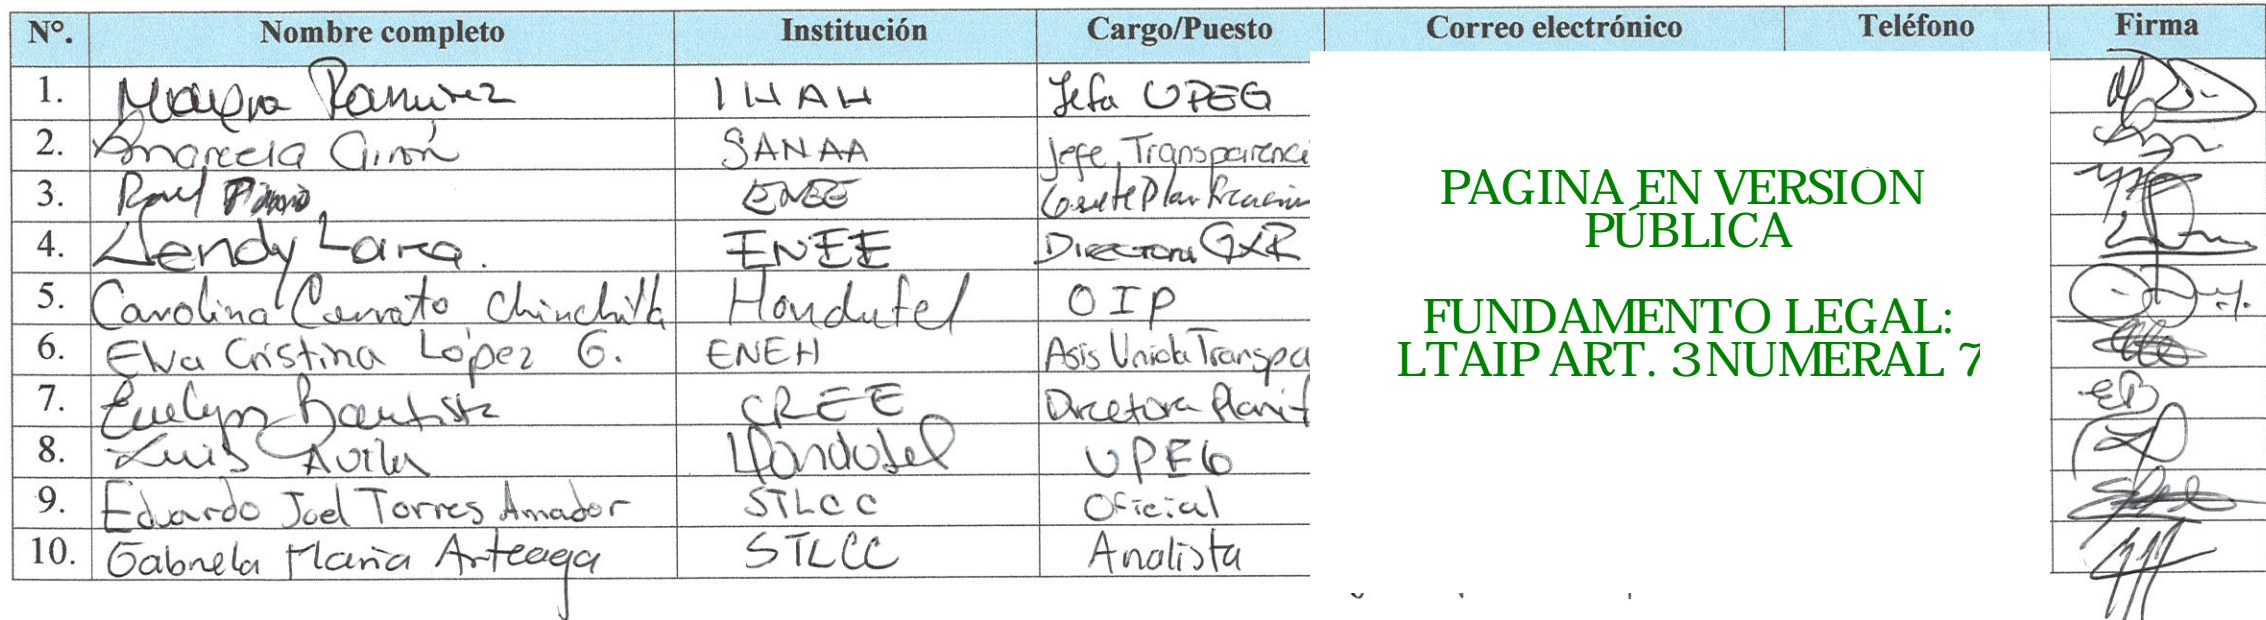 N°. Nombre completo Institución Cargo/Puesto Correo electrónico Teléfono Firma
1. Ramirez IHAH Jefa UPEG
2. Girón SANAA Jefe Transparenci
3. Raul ENEE
4. Wendy Lara. ENEE Directora GXR
5. Carolina Cerrato Chinchilla Hondutel OIP
6. Elva Cristina López G. ENEH Asis Unida Transpa
7. Evelyn Bautista CREE Directora Planif
8. Luis Avila Hondutel UPEG
9. Eduardo Joel Torres Amador STLCC Oficial
10. Gabriela Maria Arteaga STLCC Analista
PAGINA EN VERSION
PÚBLICA
FUNDAMENTO LEGAL:
LTAIP ART. 3 NUMERAL 7